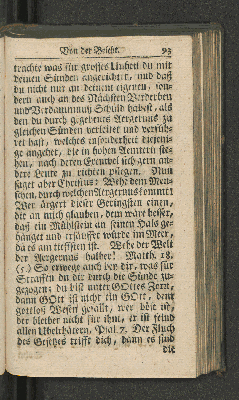 Von der Beicht. 93
trachte was für grosses Unheil du mit
deinen Sünden angerichtet, und daß
du nicht nur an deinem eigenen, son-
dern auch an des Nächsten Verderben
und Verdammnuß Schuld habest, als
den du durch gegebenes Aergernus zu
gleichen Sünden verleitet und verfüh-
ret hast, welches insonderheit diejeni-
ge angehet, die in hohen Aemtern ste-
hen, nach deren Exempel sich gern an-
dere Leute zu richten pflegen. Nun
saget aber Christus: Wehe dem Men-
schen, durch welchen Aergernus kommt
Wer ärgert dieser Geringsten einen,
die an mich glauben, dem wäre besser,
daß ein Mühlstein an seinen Hals ge-
hänget und ersäuffet würde im Meer,
da es am tieffsten ist. Wehe der Welt
der Aergernus halber! Matth. 18.
(5.) So erwege auch bey dir, was für
Straffen du dir durch die Sünde zu-
gezogen; du bist unter GOttes Zorn,
dann GOtt ist nicht ein GOtt, dem
gottlos Wesen gefällt, wer böse ist,
der bleibet nicht für ihm, er ist feind
allen Ubelthätern, Psal. 7. Der Fluch
des Gesetzes trifft dich, dann es sind
die